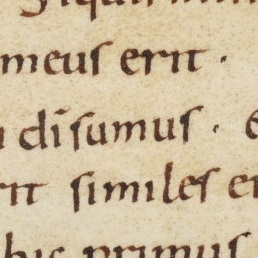 meus erit ·
disumus ·
rit similes er
his primus